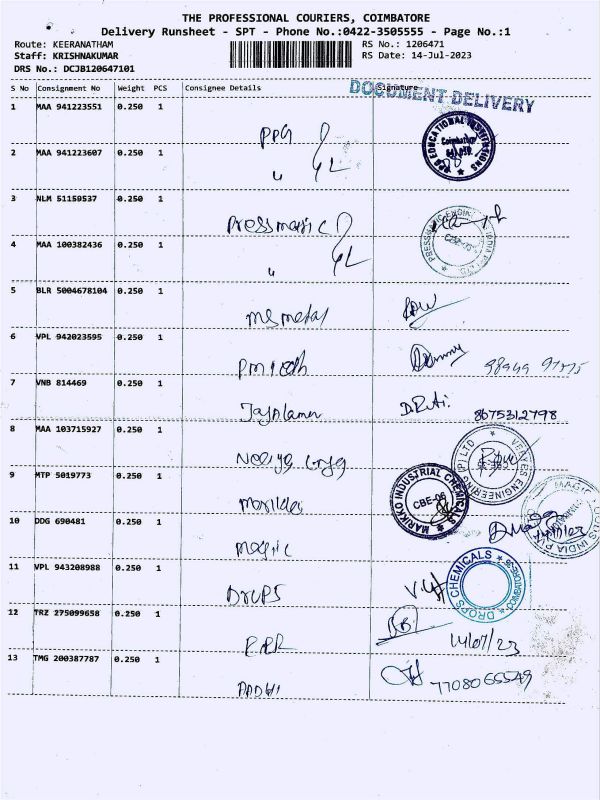 THE PROFESSIONAL COURIERS, COIMBATORE
Delivery Runsheet - SPT - Phone No.:0422-3505555 - Page No.:1
Route: KEERANATHAM
RS No.: 1206471
Staff: KRISHNAKUMAR
RS Date: 14-Jul-2023
DRS No.: DCJB120647101
S No Consignment No Weight PCS Consignee Details Signature
DOCUMENT DELIVERY
1 MAA 941223551 0.250 1
PPG
EDUCATIONAL INSTITUTIONS
Coimbatore
2 MAA 941223607 0.250 1
"
3 NLM 51159537 0.250 1
Pressmagic
4 MAA 100382436 0.250 1
"
5 BLR 5004678104 0.250 1
ms metal
6 VPL 942023595 0.250 1
7 VNB 814469 0.250 1
8675312798
8 MAA 103715927 0.250 1
VEEYES ENGINEERING (P) LTD
9 MTP 5019773 0.250 1
MARIKKO INDUSTRIAL CHEMICALS
CBE-06
10 DDG 690481 0.250 1
magic
11 VPL 943208988 0.250 1
Drops
DROPS CHEMICALS
12 TRZ 275099658 0.250 1
14/07/23
13 TMG 200387787 0.250 1
7708065549